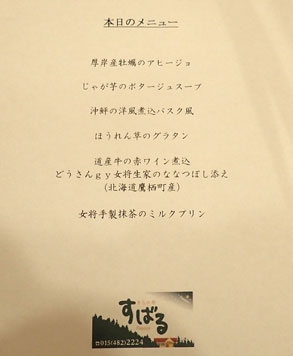 本日のメニュー
厚岸産牡蠣のアヒージョ
じゃが芋のポタージュスープ
沖鮃の洋風煮込バスク風
ほうれん草のグラタン
道産牛の赤ワイン煮込
どうさんｇｙ女将生家のななつぼし添え
（北海道鷹栖町産）
女将手製抹茶のミルクプリン
すばる
☎015(482)2224